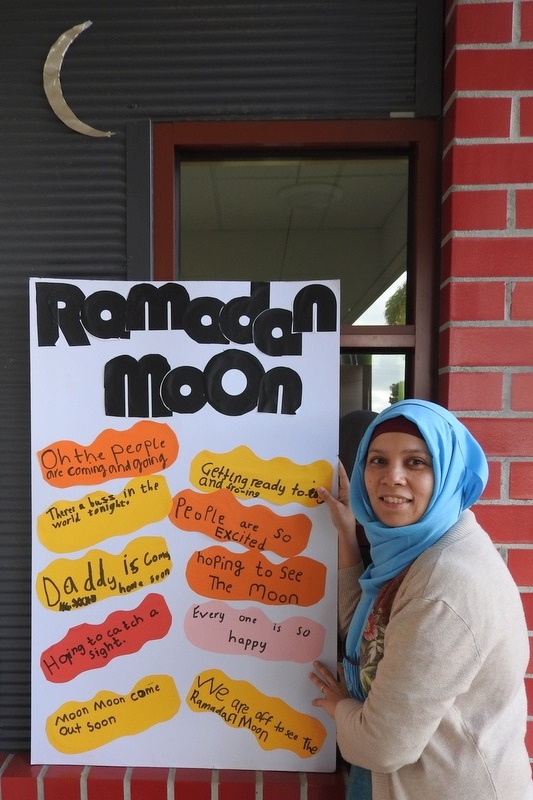 Ramadan
moon
Oh the people
are coming and going
Getting ready to-ing
and fro-ing
Theres a buzz in the
world tonight.
People are so
Excited
Daddy is coming
home soon
hoping to see
The Moon
Hoping to catch a
sight.
Every one is so
happy
Moon Moon come
out soon
We are off to see the
Ramadan Moon